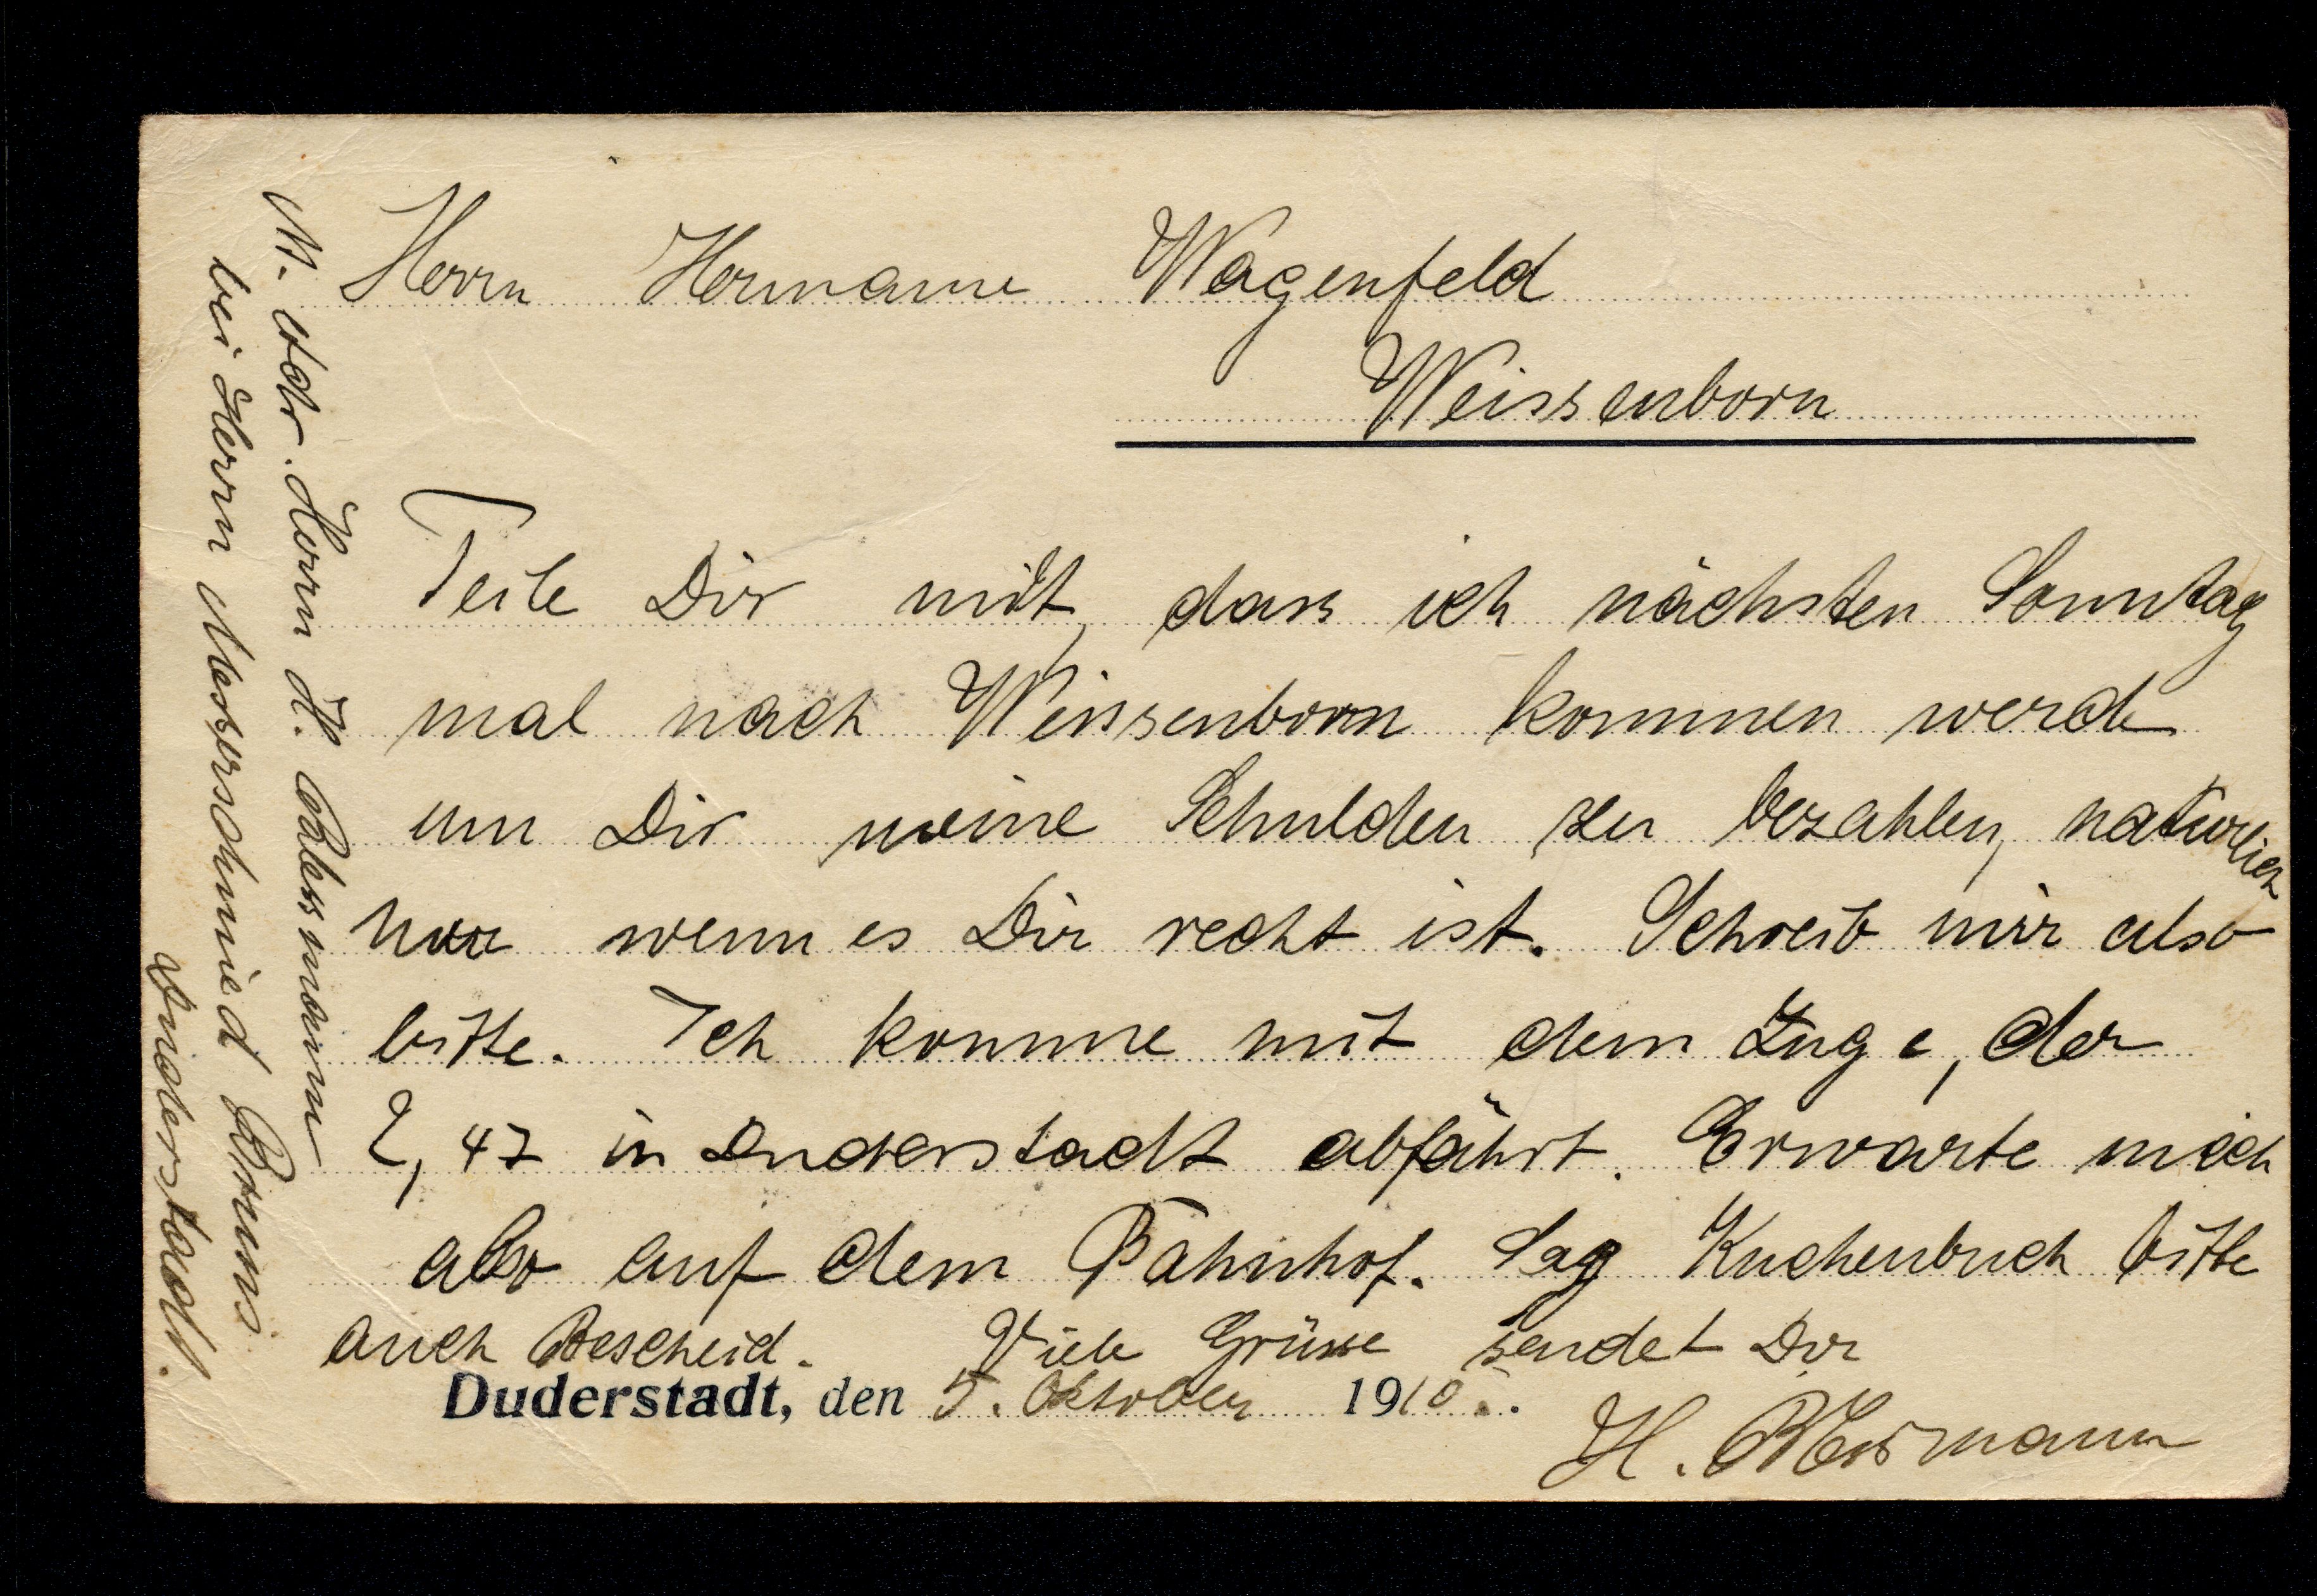 Herrn Hermann Wagenfeld
Weissenborn
Teile Dir mit, dass ich nächsten Sonntag
mal nach Weissenborn kommen werde
um Dir meine Schulden zu bezahlen, natürlich
nur wenn es Dir recht ist. Schreib mir also
bitte. Ich komme mit dem Zuge, der
2,47 in Duderstadt abfährt. Erwarte mich
also auf dem Bahnhof. Sag Kuchenbuch bitte
auch Bescheid. Viele Grüsse sendet Dir
Duderstadt, den 5. Oktober 1910.
H. Blessmann
M. Adr. Herrn H. Blessmann
bei Herrn Messerschmied Bruns
Duderstadt.